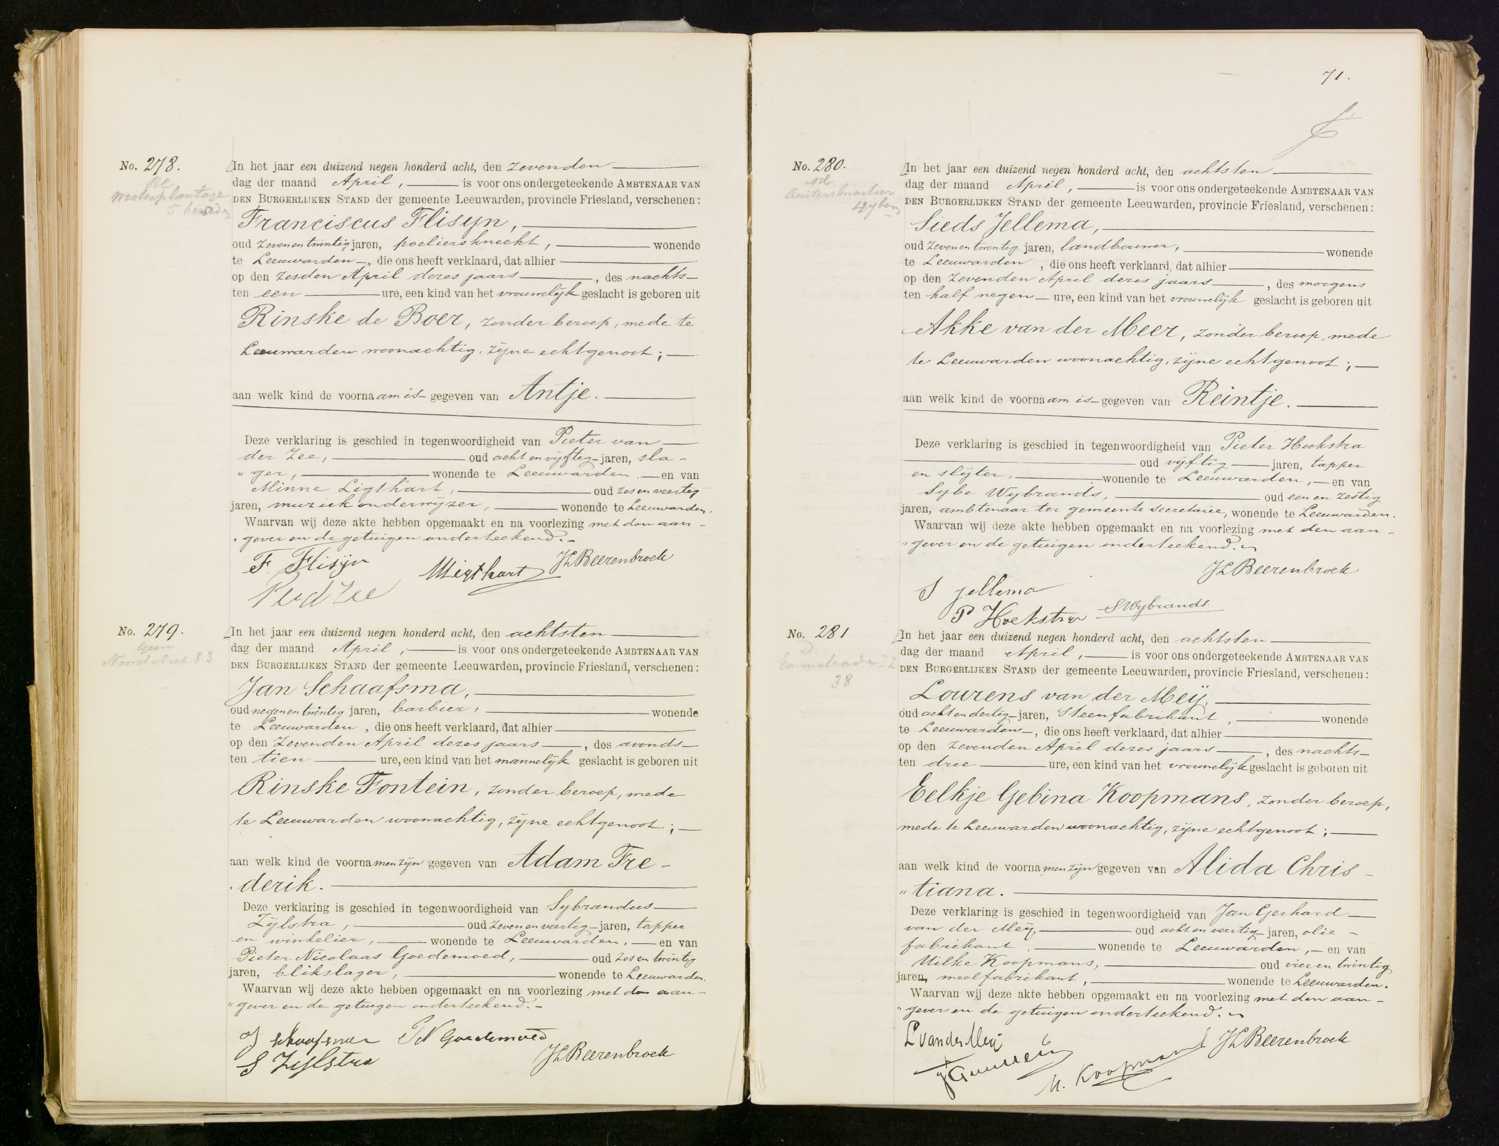 No. 278.
In het jaar een duizend negen honderd acht, den zevenden
dag der maand April, is voor ons ondergeteekende AMBTENAAR VAN
DEN BURGERLIJKEN STAND der gemeente Leeuwarden, provincie Friesland, verschenen:
Franciscus Flisijn,
oud zevenentwintig jaren, poeliersknecht, wonende
te Leeuwarden, die ons heeft verklaard, dat alhier
op den zesden April dezes jaars, des nachts
ten een ure, een kind van het vrouwelijk geslacht is geboren uit
Rinske de Boer, zonder beroep, mede te
Leeuwarden woonachtig, zijne echtgenoot;
aan welk kind de voornaam is gegeven van Antje.
Deze verklaring is geschied in tegenwoordigheid van Pieter van
der Zee, oud achtenvijftig jaren, sla-
"ger, wonende te Leeuwarden en van
Minne Ligthart, oud zesenveertig
jaren, muziekonderwijzer, wonende te Leeuwarden.
Waarvan wij deze akte hebben opgemaakt en na voorlezing met den aan-
"gever en de getuigen onderteekend.
F. Flisijn
MLigthart
JLBeerenbroek
PvdZee
No. 279.
In het jaar een duizend negen honderd acht, den achtsten
dag der maand April, is voor ons ondergeteekende AMBTENAAR VAN
DEN BURGERLIJKEN STAND der gemeente Leeuwarden, provincie Friesland, verschenen:
Jan Schaafsma,
oud negenentwintig jaren, barbier, wonende
te Leeuwarden, die ons heeft verklaard, dat alhier
op den zevenden April dezes jaars, des avonds
ten tien ure, een kind van het mannelijk geslacht is geboren uit
Rinske Fontein, zonder beroep, mede
te Leeuwarden woonachtig, zijne echtgenoot;
aan welk kind de voornamen zijn gegeven van Adam Fre-
"derik.
Deze verklaring is geschied in tegenwoordigheid van Sybrandus
Zijlstra, oud zevenenveertig jaren, tapper
en winkelier, wonende te Leeuwarden, en van
Pieter Nicolaas Goedemoed, oud zesentwintig
jaren, blikslager, wonende te Leeuwarden.
Waarvan wij deze akte hebben opgemaakt en na voorlezing met den aan-
"gever en de getuigen onderteekend.
J Schaafsma
PN Goedemoed
S Zijlstra
JLBeerenbroek
71.
No. 280.
In het jaar een duizend negen honderd acht, den achtsten
dag der maand April, is voor ons ondergeteekende AMBTENAAR VAN
DEN BURGERLIJKEN STAND der gemeente Leeuwarden, provincie Friesland, verschenen:
Sieds Jellema,
oud zevenentwintig jaren, landbouwer, wonende
te Leeuwarden, die ons heeft verklaard, dat alhier
op den zevenden April dezes jaars, des morgens
ten half negen ure, een kind van het vrouwelijk geslacht is geboren uit
Akke van der Meer, zonder beroep, mede
te Leeuwarden woonachtig, zijne echtgenoot;
aan welk kind de voornaam is gegeven van Reintje.
Deze verklaring is geschied in tegenwoordigheid van Pieter Hoekstra
oud vijftig jaren, tapper
en slijter, wonende te Leeuwarden, en van
Sybe Wybrands, oud een en zestig
jaren, ambtenaar ter gemeente secretarie, wonende te Leeuwarden.
Waarvan wij deze akte hebben opgemaakt en na voorlezing met den aan-
"gever en de getuigen onderteekend.
JLBeerenbroek
S Jellema
P Hoekstra
SWybrands
No. 281
38
In het jaar een duizend negen honderd acht, den achtsten
dag der maand April, is voor ons ondergeteekende AMBTENAAR VAN
DEN BURGERLIJKEN STAND der gemeente Leeuwarden, provincie Friesland, verschenen:
Lourens van der Meij,
oud achtendertig jaren, steenfabrikant, wonende
te Leeuwarden, die ons heeft verklaard, dat alhier
op den zevenden April dezes jaars, des nachts
ten drie ure, een kind van het vrouwelijk geslacht is geboren uit
Eelkje Gebina Koopmans, zonder beroep,
mede te Leeuwarden woonachtig, zijne echtgenoot;
aan welk kind de voornamen zijn gegeven van Alida Chris-
"tiana.
Deze verklaring is geschied in tegenwoordigheid van Jan Gerhard
van der Meij, oud achtenveertig jaren, olie-
fabrikant, wonende te Leeuwarden, en van
Milke Koopmans, oud vierentwintig
jaren, meelfabrikant, wonende te Leeuwarden.
Waarvan wij deze akte hebben opgemaakt en na voorlezing met den aan-
"gever en de getuigen onderteekend.
LvanderMeij
JLBeerenbroek
M. Koopmans